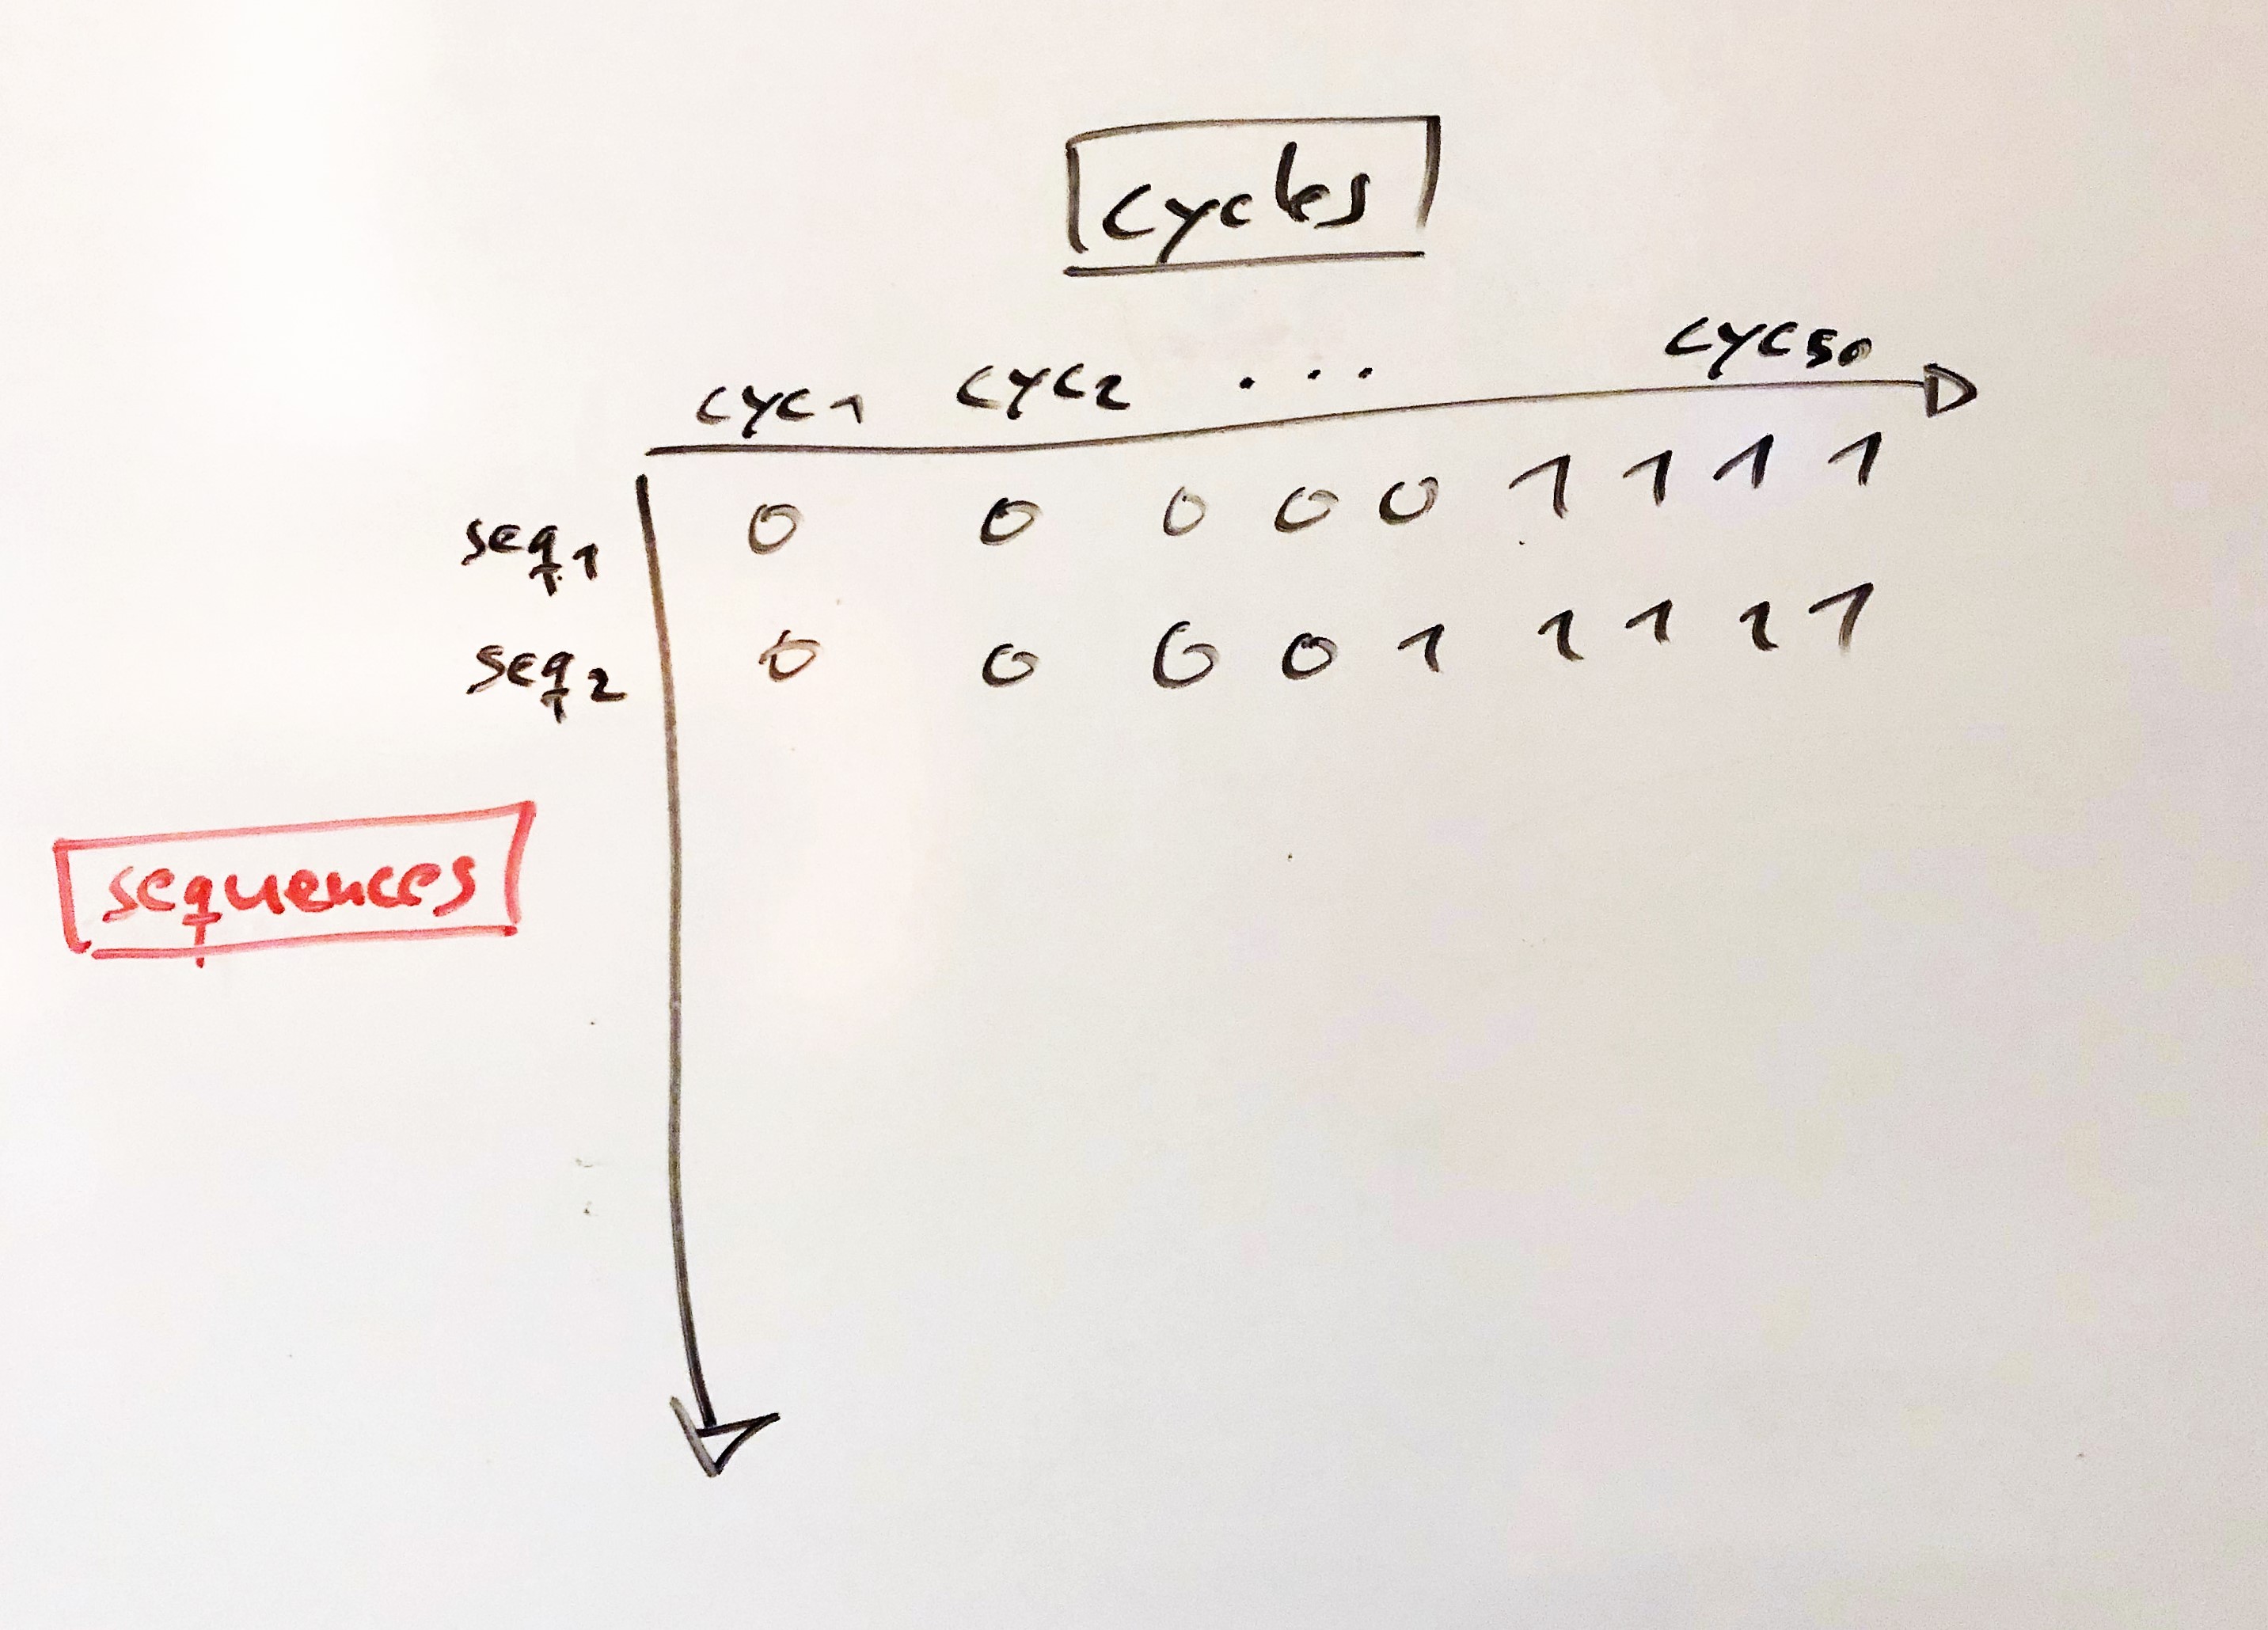 cycles
cyc1 cyc2 ... cyc50
seq1 0 0 0 0 0 1 1 1 1
seq2 0 0 0 0 1 1 1 1 1
sequences